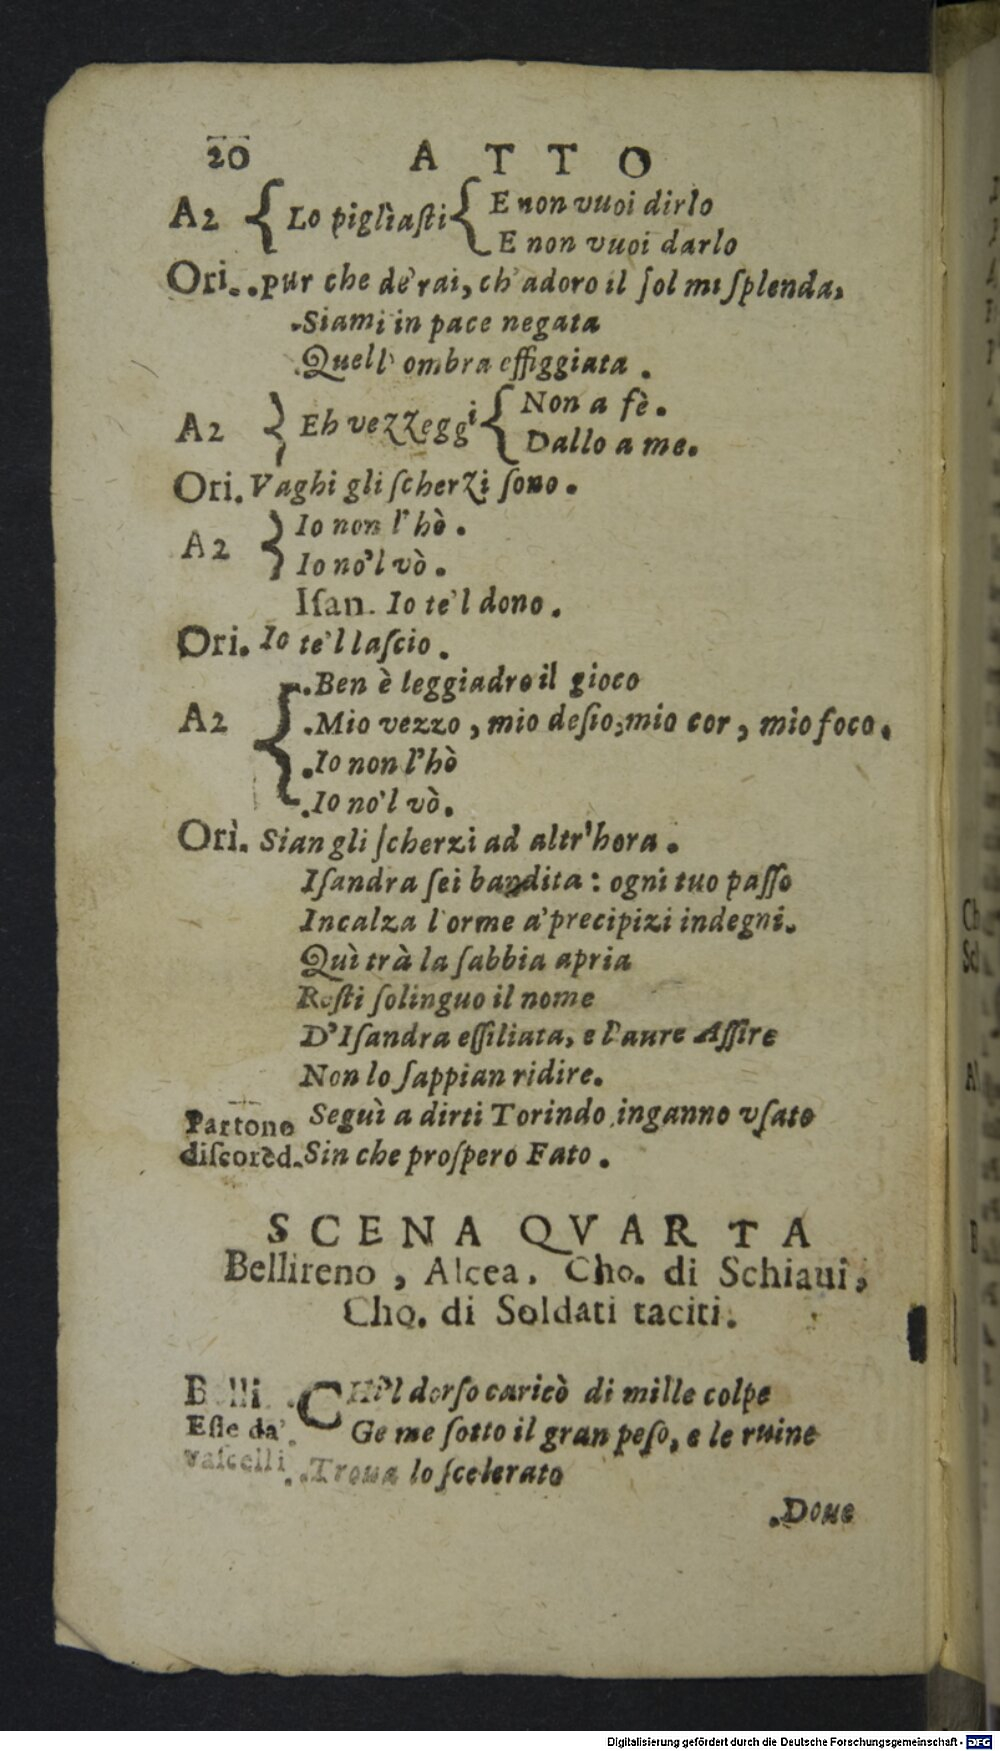 20 ATTO
A2 { Lo pigliaſti { E non vuoi dirlo
E non vuoi darlo
Ori. pur che de' rai, ch' adoro il ſol mi ſplenda,
Siami in pace negata
Quell' ombra effiggiata.
A2 } Eh vezzeggi { Non a fè.
Dallo a me.
Ori. Vaghi gli ſcherzi ſono.
A2 } Io non l' hò.
Io no'l vò.
Iſan. Io te'l dono.
Ori. Io te'l laſcio.
A2 { Ben è leggiadro il gioco
Mio vezzo, mio deſio, mio cor, mio foco.
Io non l'hò
Io no'l vò.
Ori. Sian gli ſcherzi ad altr'hora.
Iſandra ſei bandita: ogni tuo paſſo
Incalza l'orme a' precipizi indegni.
Quì trà la ſabbia apria
Reſti ſolinguo il nome
D'Iſandra eſſiliata, e l'aure Aſſire
Non lo ſappian ridire.
Partono Seguì a dirti Torindo inganno vſato
diſcorēd. Sin che proſpero Fato.
SCENA QVARTA
Bellireno, Alcea, Cho. di Schiaui,
Cho. di Soldati taciti.
Belli. CHi'l dorſo caricò di mille colpe
Eſſe da' Geme ſotto il gran peſo, e le ruine
vaſcelli. Troua lo ſcelerato
Doue
Digitalisierung gefördert durch die Deutsche Forschungsgemeinschaft - DFG